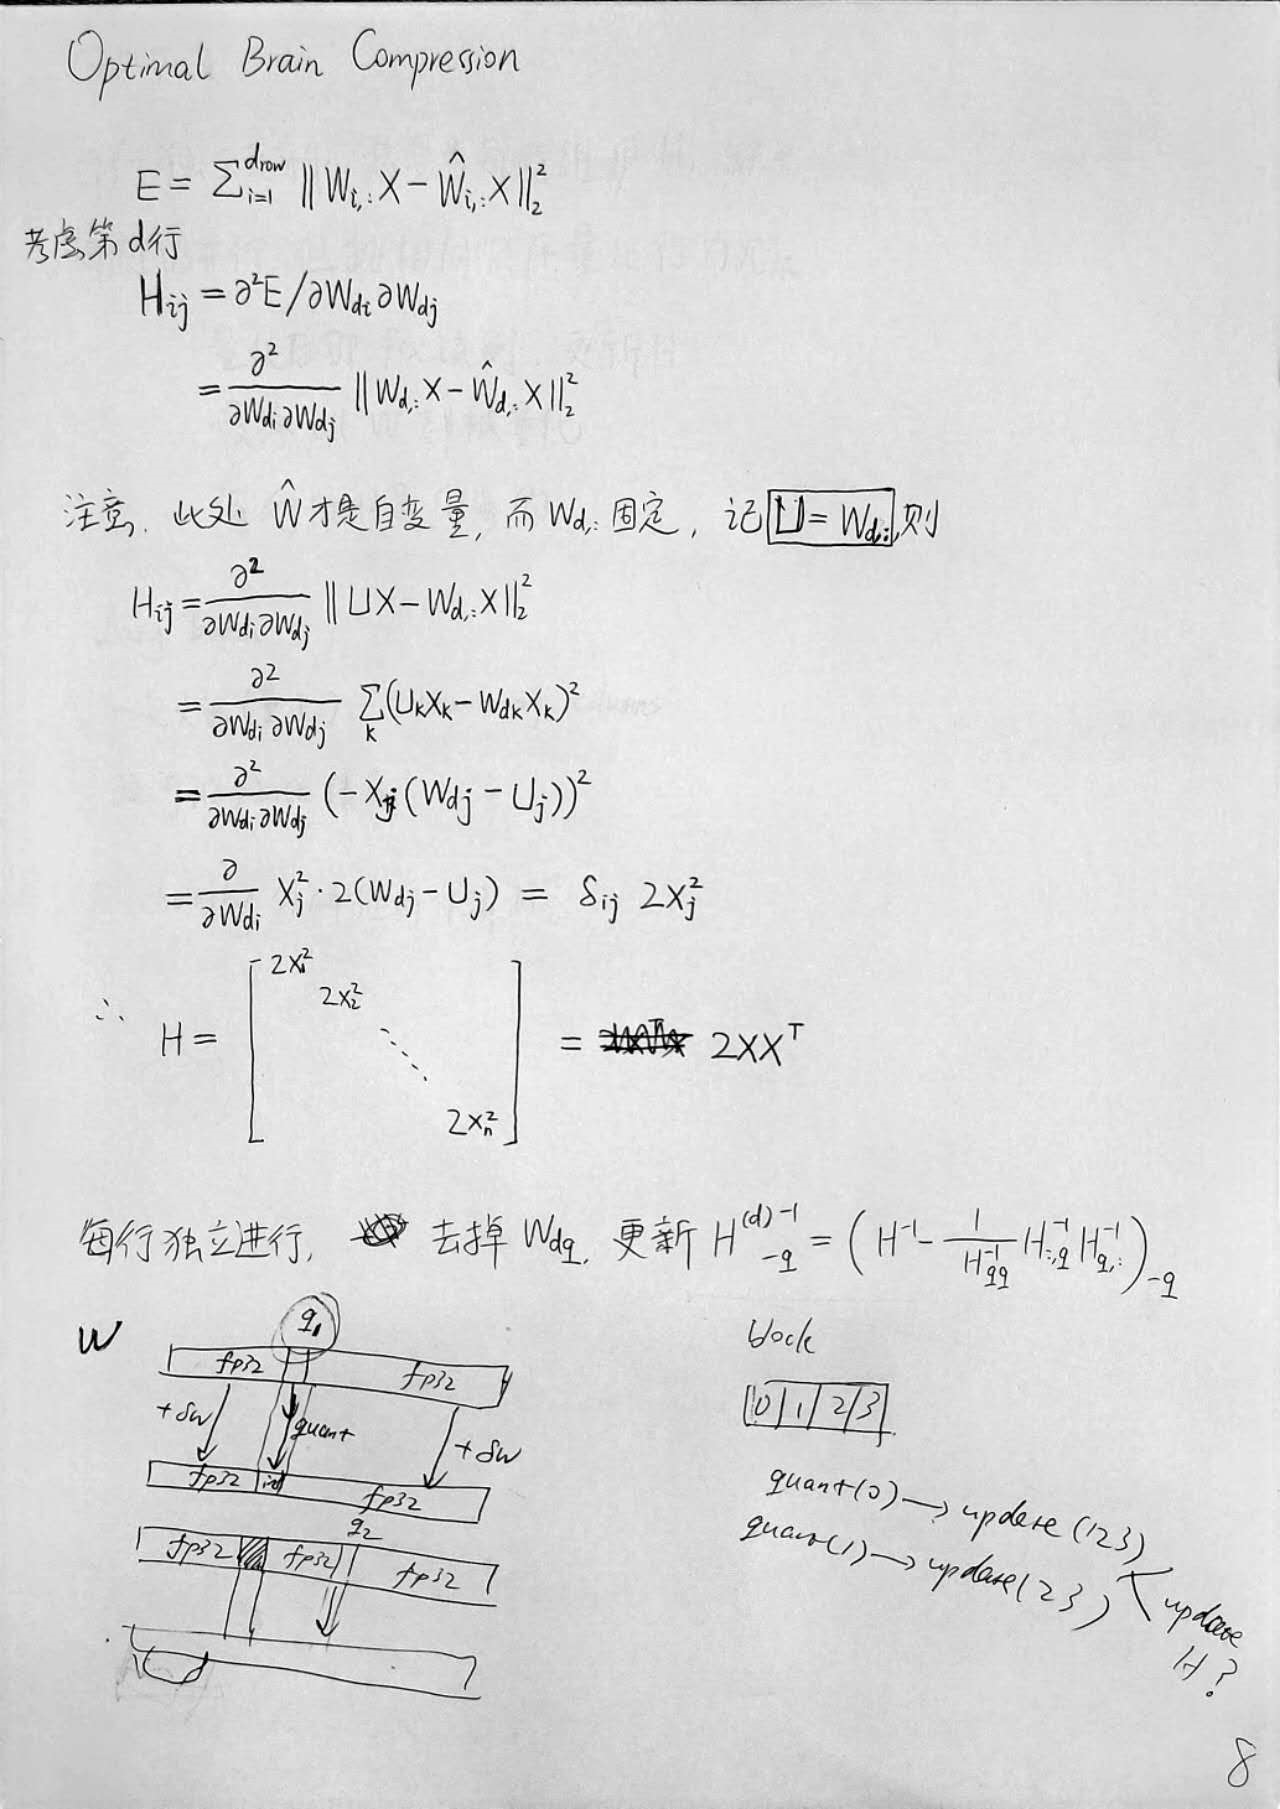 Optimal Brain Compression
E = ∑_{i=1}^{drow} ‖W_{i,:}X − Ŵ_{i,:}X‖₂²
考虑第d行
H_{ij} = ∂²E/∂W_{di}∂W_{dj}
= ∂²/∂W_{di}∂W_{dj} ‖W_{d,:}X − Ŵ_{d,:}X‖₂²
注意, 此处 Ŵ才是自变量, 而 W_{d,:} 固定, 记 U = W_{d,:}, 则
H_{ij} = ∂²/∂W_{di}∂W_{dj} ‖UX − W_{d,:}X‖₂²
= ∂²/∂W_{di}∂W_{dj} ∑_k (U_kX_k − W_{dk}X_k)²
= ∂²/∂W_{di}∂W_{dj} (−X_j(W_{dj} − U_j))²
= ∂/∂W_{di} X_j² · 2(W_{dj} − U_j) = δ_{ij} 2X_j²
∴ H = [2X₁² 2X₂² ⋱ 2X_n²] = 2XX^T
每行独立进行, 去掉 W_{dq}, 更新 H_{-q}^{(d)-1} = (H^{-1} − 1/H_{qq}^{-1} H_{:,q}^{-1} H_{q,:}^{-1})_{-q}
W
q₁
fp32 fp32
+δw quant +δw
fp32 int fp32
q₂
fp32 fp32 fp32
block
0 1 2 3
quant(0) → update(123)
quant(1) → update(23)
update
H?
8